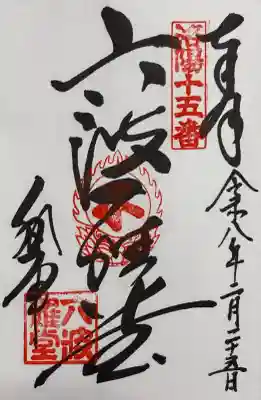 奉拝
洛陽十五番
令和八年二月二十五日
六波羅堂
六波
羅堂